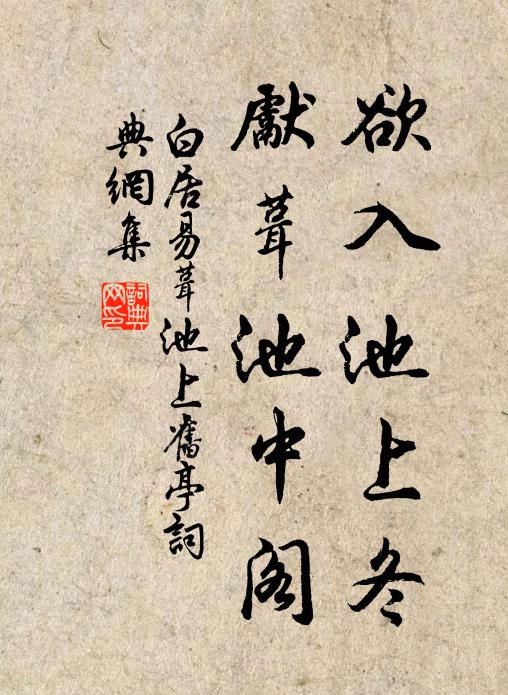 欲入池上冬
獻葺池中閣
白居易葺池上舊亭詞
典網集
詞典
网印